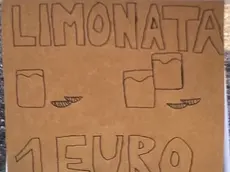 LIMONATA
1 EURO